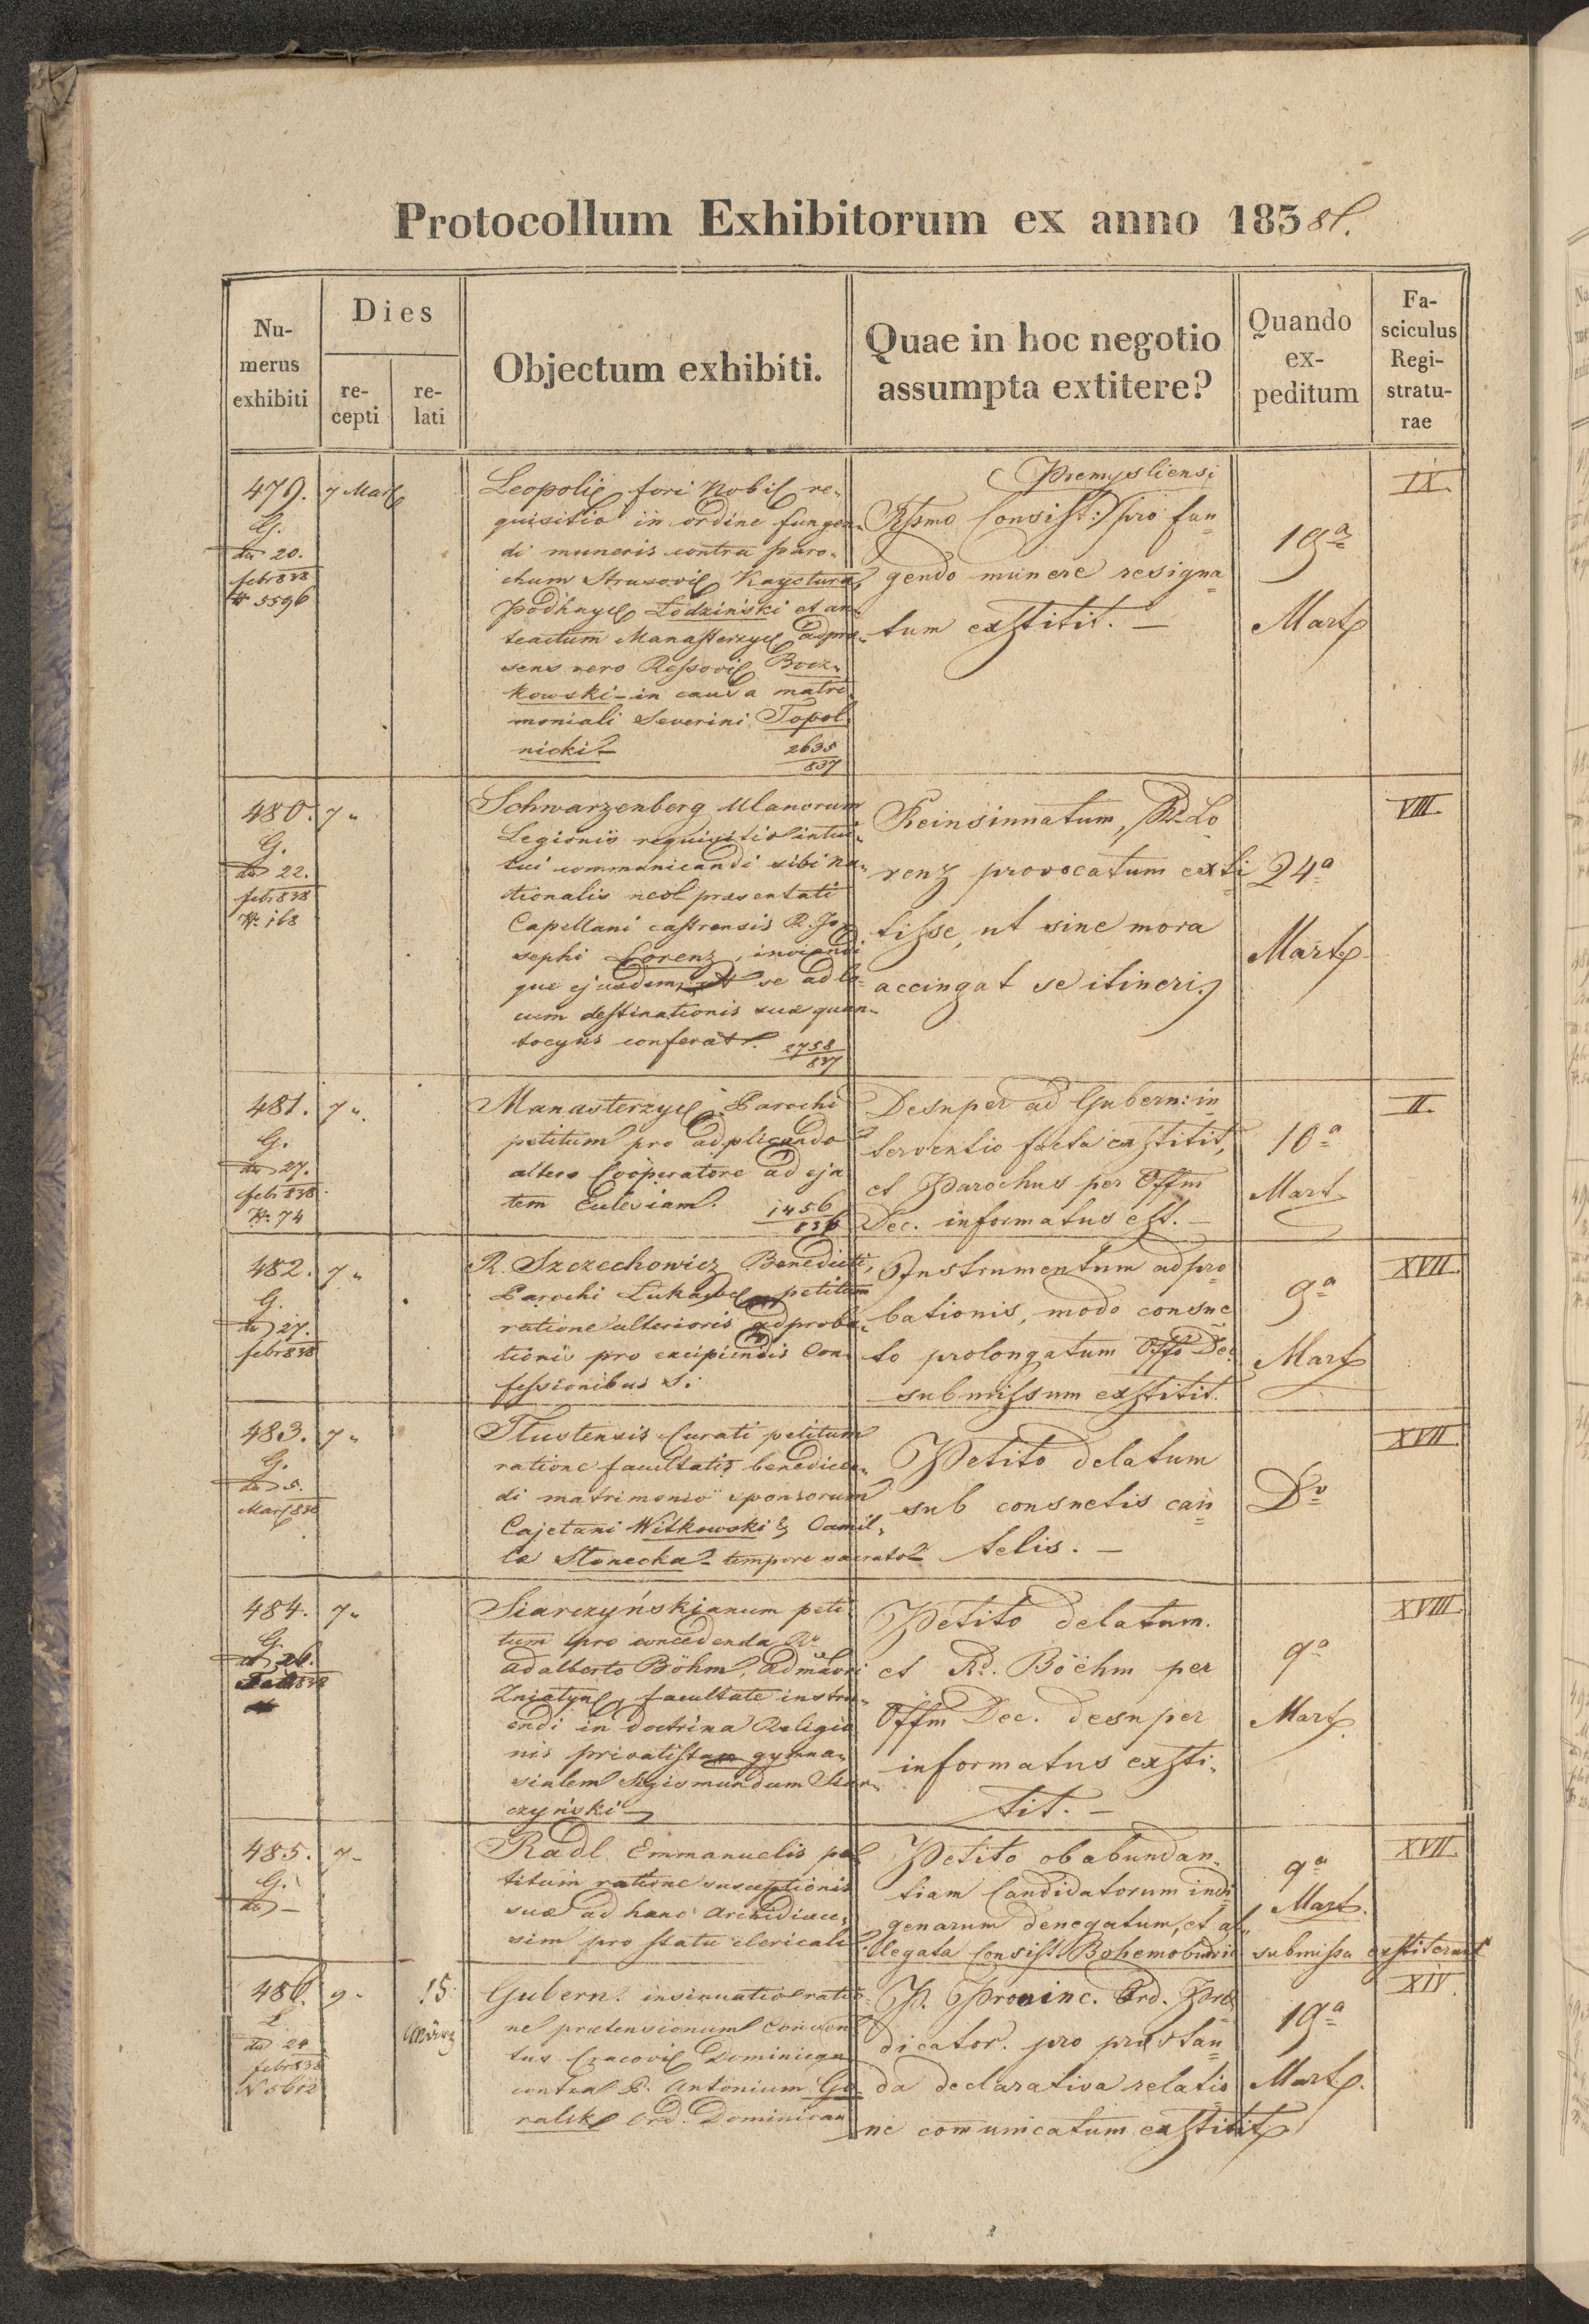 Protocollum Exhibitorum ex anno 183 8
Nu-
merus
exhibiti
Dies
re-
cepti
re-
lati
Objectum exhibiti.
Quae in hoc negotio
assumpta extitere?
Quando
ex-
peditum
Fa-
sciculus
Regi-
stratu-
rae
479.
G.
20.
febr 838
N 5596
7 Mart
Leopoli fori Nobil re-
quisitio in ordine fungen-
di muneris contra paro-
chum Strusovi Kaystura,
Podhayc Łodziński et an-
teactum Manasterzyc ad præ-
sens vero Ressovi Bocz-
kowski - in causa matri-
moniali Severini Topol-
nicki
2635
837
Premysliensi
Rssmo Consist: pro fun-
gendo munere resigna-
tum exstitit. —
19a
Mart
IX
480.
G.
22.
febr 838
N. 168
7 "
Schwarzenberg Ulanorum
Legionis requisitio intui-
tui communicandi sibi na-
tionalis neo præsentati
Capellani castrensis R. Jo-
sephi Lorenz, inviandi
que ejusdem, ut se ad lo-
cum destinationis suæ quan-
tocyus conferat.
2758
837
Reinsinuatum, Rd Lo-
renz provocatum exti-
tisse, ut sine mora
accingat se itineri.
24a
Mart
VIII
481.
G.
27.
febr 838.
N. 74
7 "
Manasterzyc Parochi
petitum pro adplicando
altero Coöperatore ad eja-
tem Eulesiam.
1456
836
Desuper ad Gubern: in-
terventio facta exstitit,
et Parochus per Offm
Dec. informatus est. —
10a
Mart
II.
482.
G.
27.
febr 838
7 "
R. Szczechowicz Benedicti,
Parochi Lukawec petitum
ratione ulterioris adproba-
tionis pro excipiendis Con-
fessionibus S:
Instrumentum adpro-
bationis, modo consue-
to prolongatum Offo Dec.
submissum exstitit.
9a
Mart
XVII.
483.
G.
5.
Mart 838
7 "
Tłustensis Curati petitum
ratione facultatis benedicen-
di matrimonio sponsorum
Cajetani Witkowski & Camil-
læ Słonecka tempore sacrato
Petito delatum
sub consuetis cau-
telis. —
Do
XVII.
484.
G.
26.
838
7 "
Siarczyńskianum peti-
tum pro concedenda Ro
Adalberto Böhm,
Zniatyn, facultate instru-
endi in doctrina Religio-
nis privatistam gymna-
sialem Sigismundum Siar-
czyński
Petito delatum.
et Rd. Böehm per
Offm Dec. desuper
informatus exsti-
tit. —
9a
Mart
XVIII.
485.
G.
—
7 -
Radl Emmanuelis pe-
titum ratione susceptionis
suæ ad hanc Archidiœce-
sim pro statu clericali.
Petito ob abundan-
tiam Candidatorum indi-
genarum denegatum, et al-
legata Consist. Bohemobudvi submissa exstiterunt
9a
Mart.
XVII.
486.
24
febr 838
N 5612
9 -
15
März
Gubern. insinuatio ratio-
ne prætensionum Conven-
tus Cracovi Dominican
contra P. Antonium Go-
ralsk Ord. Dominican
P. Provinc. Ord. Præ-
dicator. pro præstan-
da declarativa relatio-
ne comunicatum exstitit
19a
Mart.
XIV.